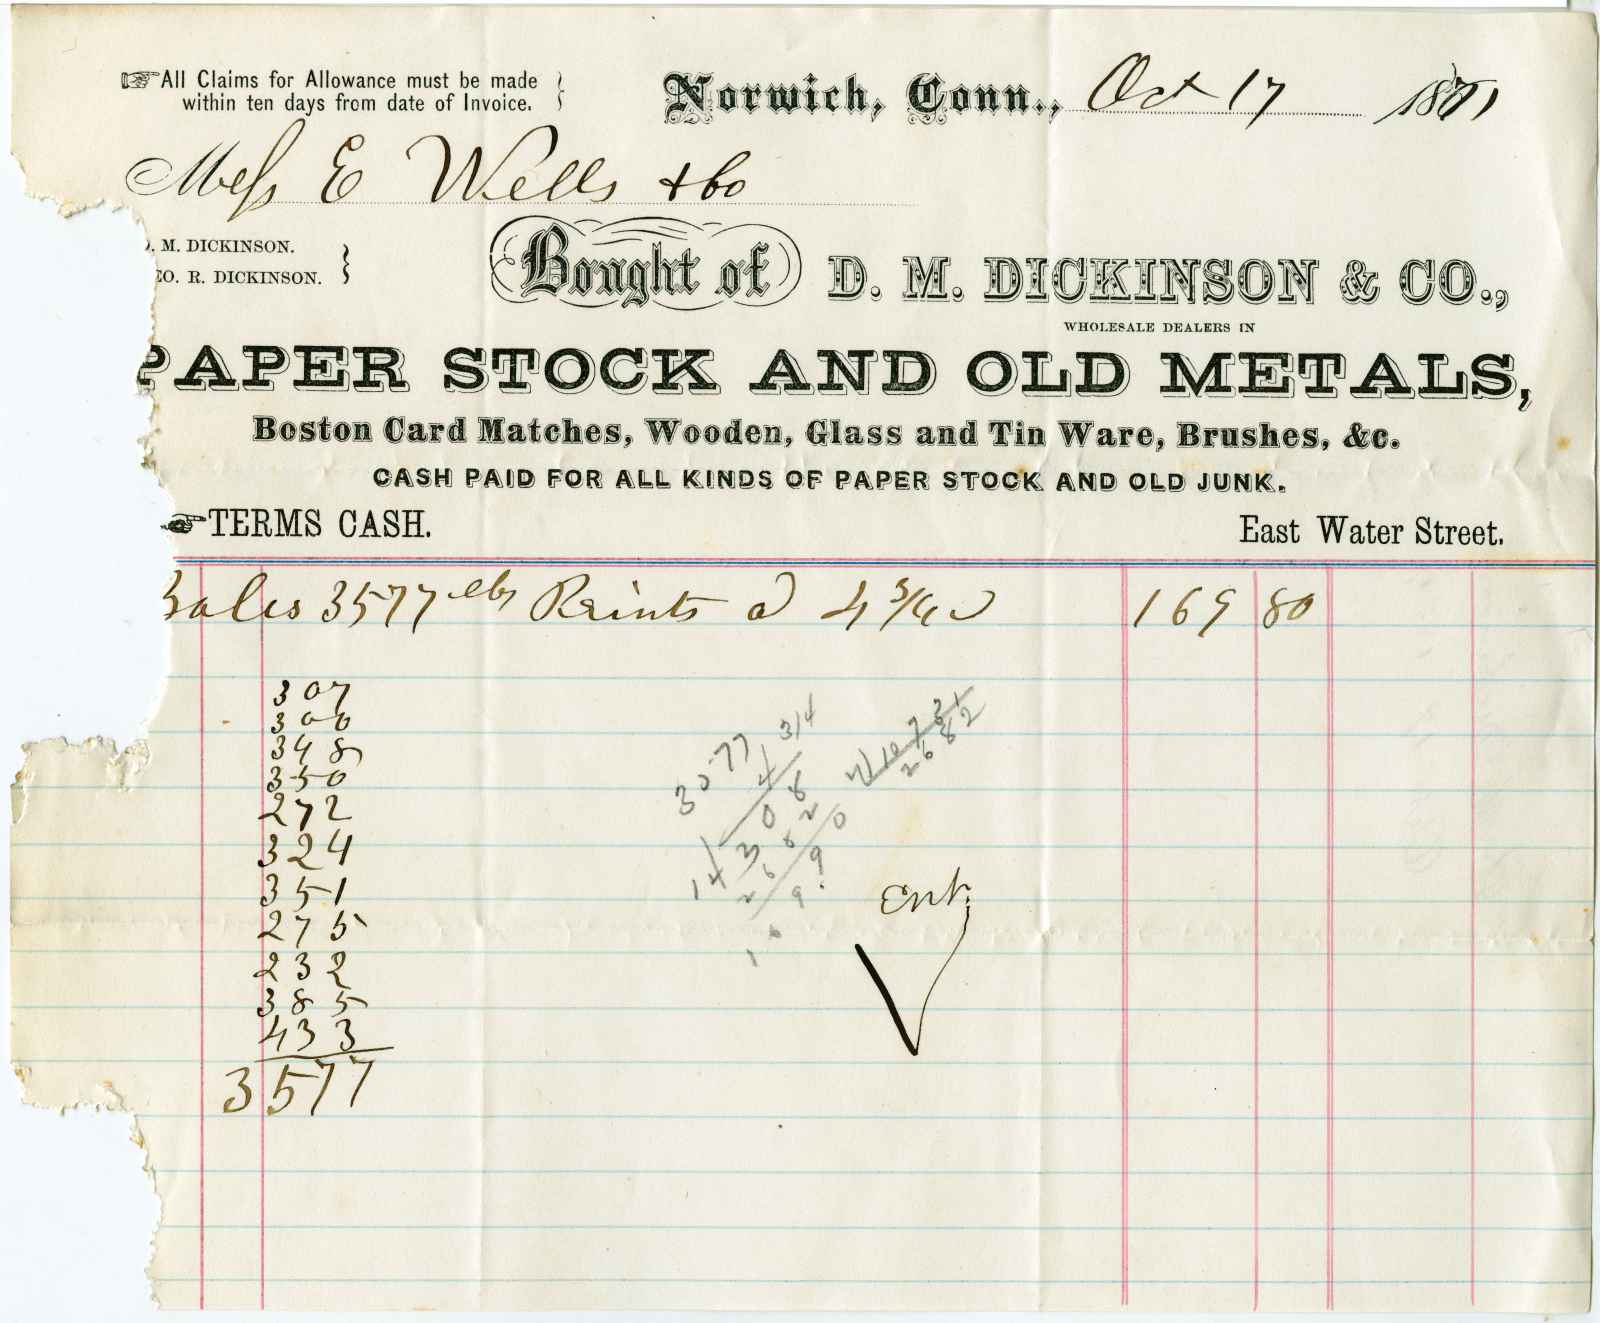 All Claims for Allowance must be made
within ten days from date of Invoice.
Norwich, Conn., Oct 17 1871
Mess E Wells & Co
. M. DICKINSON.
EO. R. DICKINSON.
Bought of D. M. DICKINSON & CO.,
WHOLESALE DEALERS IN
PAPER STOCK AND OLD METALS,
Boston Card Matches, Wooden, Glass and Tin Ware, Brushes, &c.
CASH PAID FOR ALL KINDS OF PAPER STOCK AND OLD JUNK.
TERMS CASH.
East Water Street.
Bales 3577 lbs Prints a 4 3/4 169 80
307
300
348
350
272
324
351
275
232
385
433
3577
3577
4 3/4
14308
2682
2682
16990
Ent.